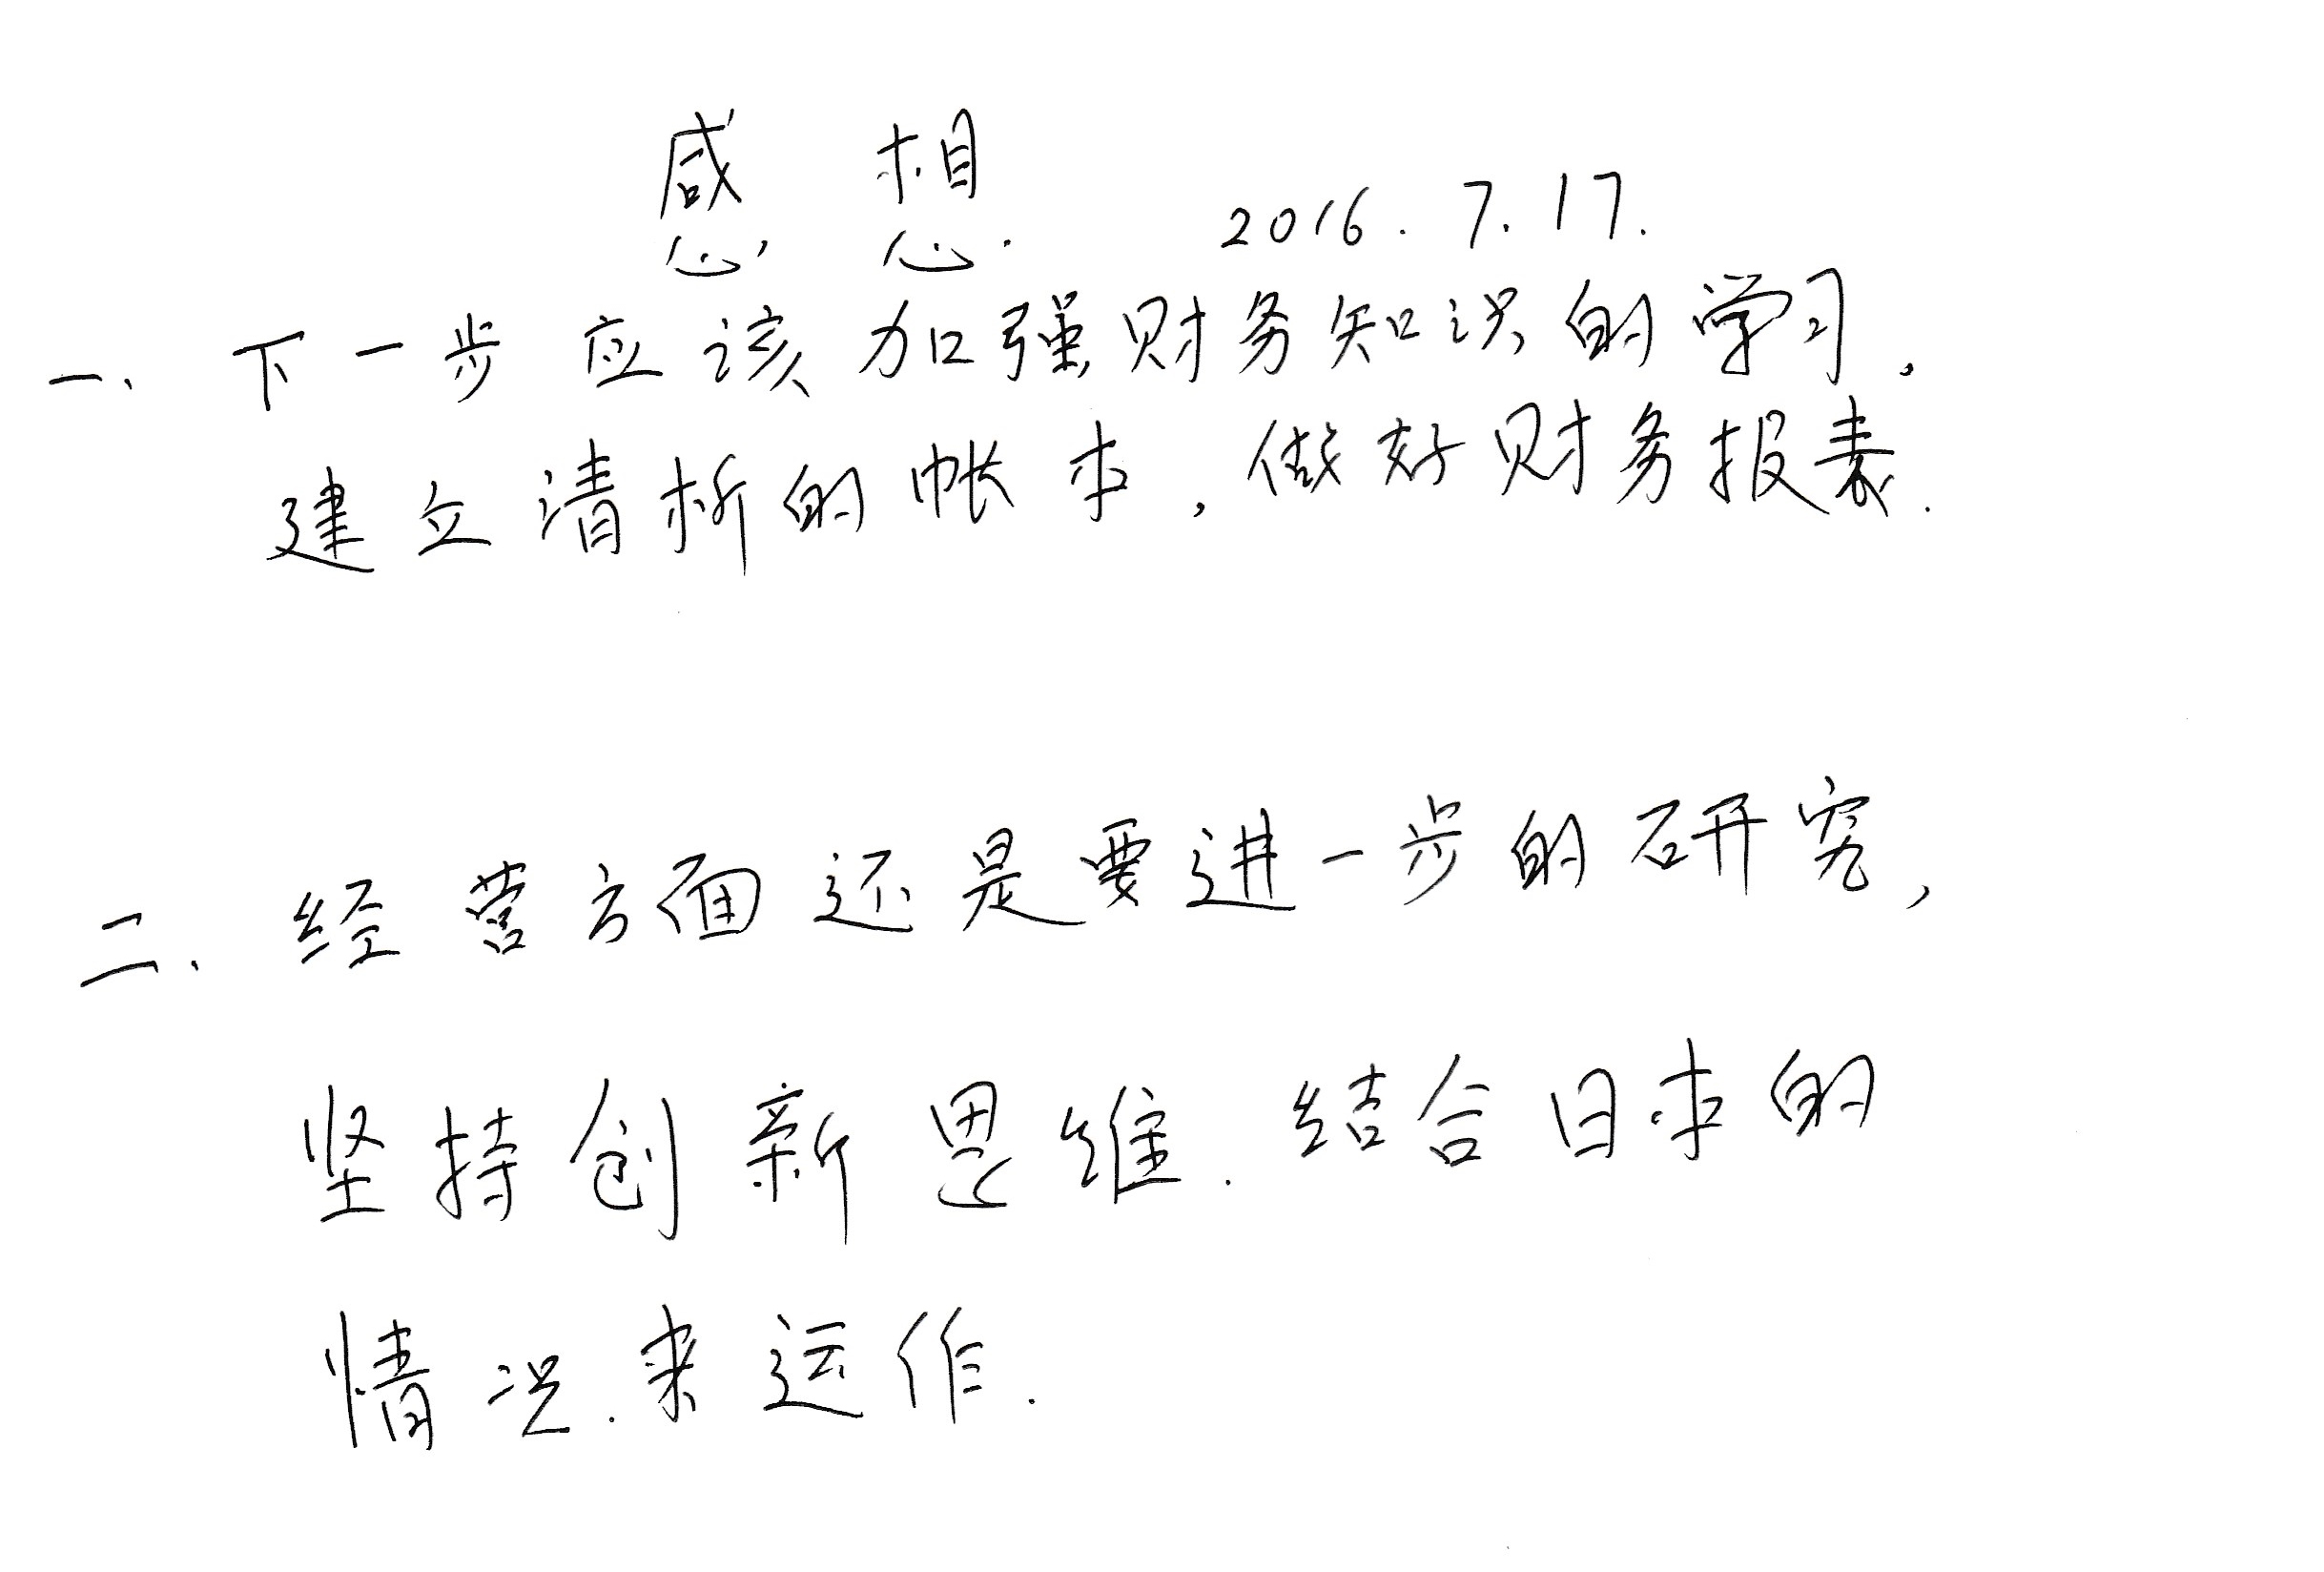 感想.
2016.7.17.
一、下一步应该加强财务知识的学习,
建立清析的帐本,做好财务报表.
二、经营方面还是要进一步的研究,
坚持创新思维.结合日本的
情况.来运作.